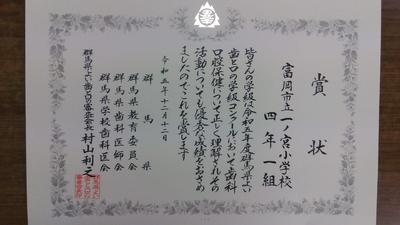 賞状
富岡市立一ノ宮小学校
四年一組
皆さんの学級は令和五年度群馬県よい
歯と口の学級コンクールにおいて歯科
口腔保健について正しく理解されその
活動についても優秀な成績をおさめ
ましたのでこれを賞します
令和五年十二月十二日
群馬県
群馬県教育委員会
群馬県歯科医師会
群馬県学校歯科医会
群馬県よい歯と口の審査会会長 村山利之